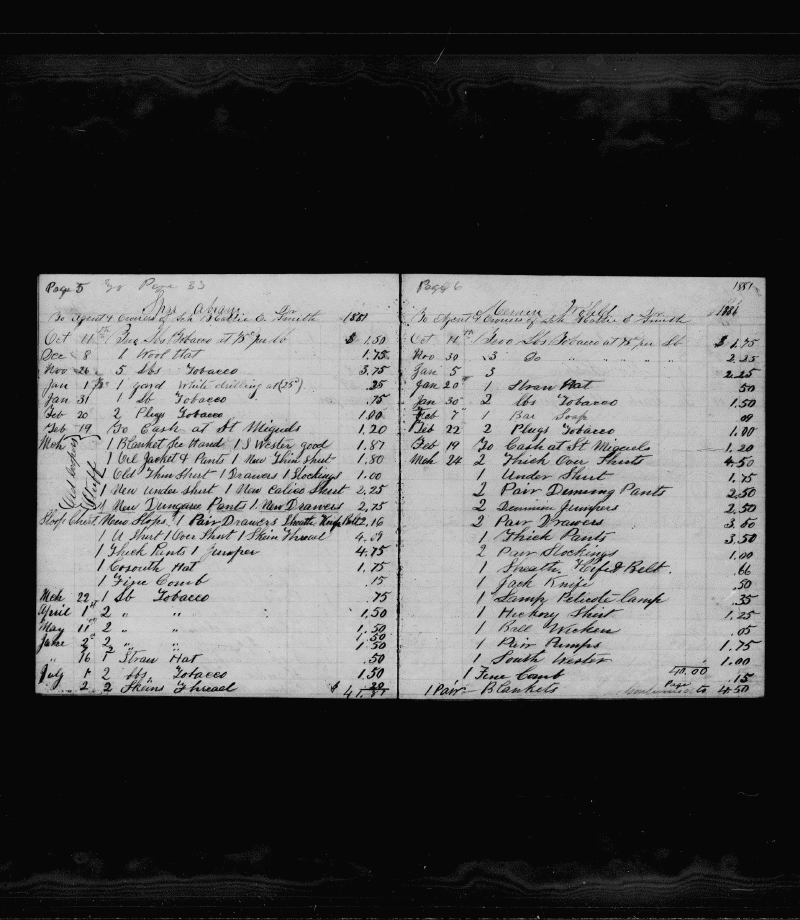 Page 5 To Page 33
To Agent & Owners of Sch Hattie E. Smith Dr 1881
Oct 11th Two Lbs Tobacco at 75c per lb $ 1.50
Dec 8 1 Wool Hat 1.75
Nov 26 5 Lbs Tobacco 3.75
Jan 17 1 yard White drilling at (25c) .25
Jan 31 1 Lb Tobacco .75
Feb 20 2 Plugs Tobacco 1.00
Feb 19 To Cash at St Miguels 1.20
Mch 1 Blanket Sec Hand 1 S Wester good 1.87
1 Oil Jacket & Pants 1 New Thin Shirt 1.80
1 Old Thin Shirt 1 Drawers 1 Stockings 1.00
1 New Under Shirt 1 New Calico Shirt 2.25
1 New Dungaree Pants 1 New Drawers 2.75
Slops Chest New Slops, 1 Pair Drawers Sheath Knife Belt 2.16
1 U Shirt 1 Over Shirt 1 Skein Thread 4.09
1 Thick Pants 1 Jumper 4.75
1 Cosouth Hat 1.75
1 Fine Comb .15
Mch 22 1 Lb Tobacco .75
April 1st 2 " " 1.50
May 11th 2 " " 1.50
June 2d 2 " " 1.50
" 16 1 Straw Hat .50
July 1 2 lbs Tobacco 1.50
" 2 2 Skeins Thread .20
Page 6 1881
To Agent & Owners of Sch Hattie E Smith Dr 1881
Oct 11th Two Lbs Tobacco at 75c per Lb $ 1.75
Nov 30 3 Do " " " " 2.25
Jan 5 3 2.25
Jan 20th 1 Straw Hat 50
Jan 30th 2 lbs Tobacco 1.50
Feb 7th 1 Bar Soap 09
Feb 22 2 Plugs Tobacco 1.00
Feb 19 To Cash at St Miguels 1.20
Mch 24 2 Thick Over Shirts 4.50
1 Under Shirt 1.75
2 Pair Denning Pants 2.50
2 Dennim Jumpers 2.50
2 Pair Drawers 3.50
1 Thick Pants 3.50
2 Pair Stockings 1.00
1 Sheath Knife & Belt .66
1 Jack Knife .50
1 Lamp Pelicate Lamp .35
1 Hickory Shirt 1.25
1 Ball Wicken .05
1 Pair Pumps 1.75
1 South Wester 1.00
1 Fine Comb 40.00 .15
1 Pair Blankets Page to 4.50